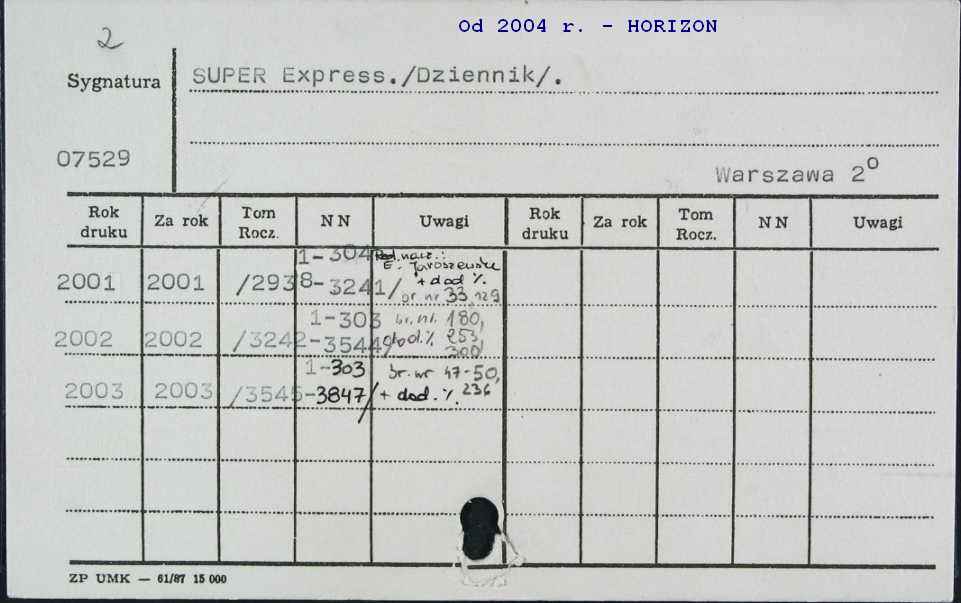 Od 2004 r. - HORIZON
2
Sygnatura
SUPER Express./Dziennik/.
07529
Warszawa 2°
Rok druku Za rok Tom Rocz. NN Uwagi Rok druku Za rok Tom Rocz. NN Uwagi
1-304 Red. nacz.:
E. Jaroszewska
2001 2001 /2938-3241/ + dod %.
br. nr 33, 129
1-303 br. nr. 180,
2002 2002 /3242-3544/ dod. % 253,
300,
1-303 br. nr 47-50,
2003 2003 /3545-3847/ + dod. %. 236
ZP UMK — 61/87 15 000